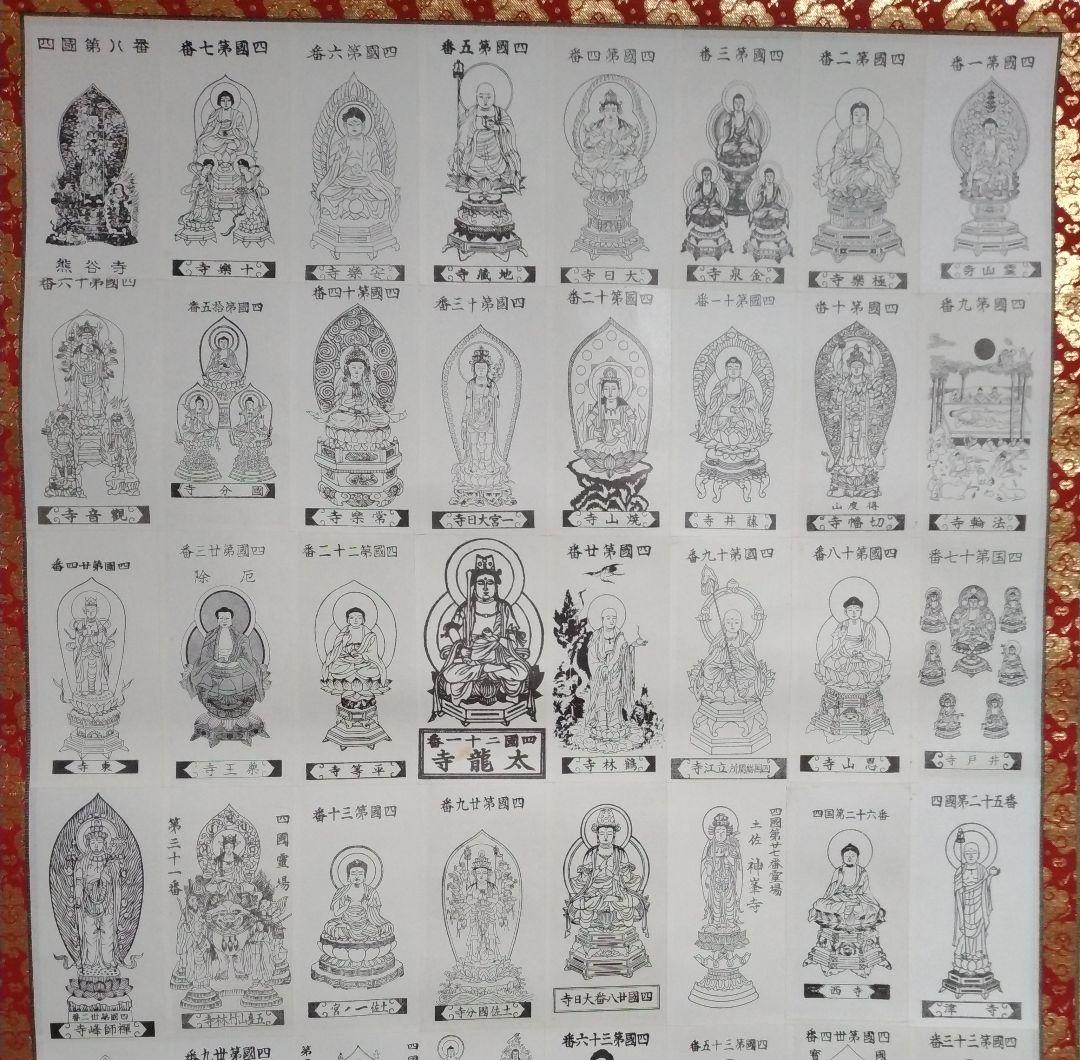 四國第一番
靈山寺
四國第二番
極樂寺
四國第三番
金泉寺
四國第四番
大日寺
四國第五番
地蔵寺
四國第六番
安樂寺
四國第七番
十樂寺
四國第八番
熊谷寺
四國第九番
法輪寺
四國第十番
得度山
切幡寺
四國第十一番
藤井寺
四國第十二番
焼山寺
四國第十三番
一宮大日寺
四國第十四番
常樂寺
四國第拾五番
國分寺
四國第十六番
觀音寺
四国第十七番
井戸寺
四國第十八番
恩山寺
四國第十九番
立江寺
四國第廿番
鶴林寺
四國二十一番
太龍寺
四國第二十二番
平等寺
四國第廿三番
厄除
藥王寺
四國第廿四番
東寺
四國第二十五番
津寺
四国第二十六番
西寺
四國第廿七番靈場
土佐 神峯寺
四國廿八番大日寺
四國第廿九番
土佐國分寺
四國第三十番
土佐一ノ宮
四國靈場
第三十一番
五臺山竹林寺
四國第卅二番
禪師峰寺
四國第三十三番
四國第卅四番
四國第三十五番
四國第三十六番
四國第卅九番